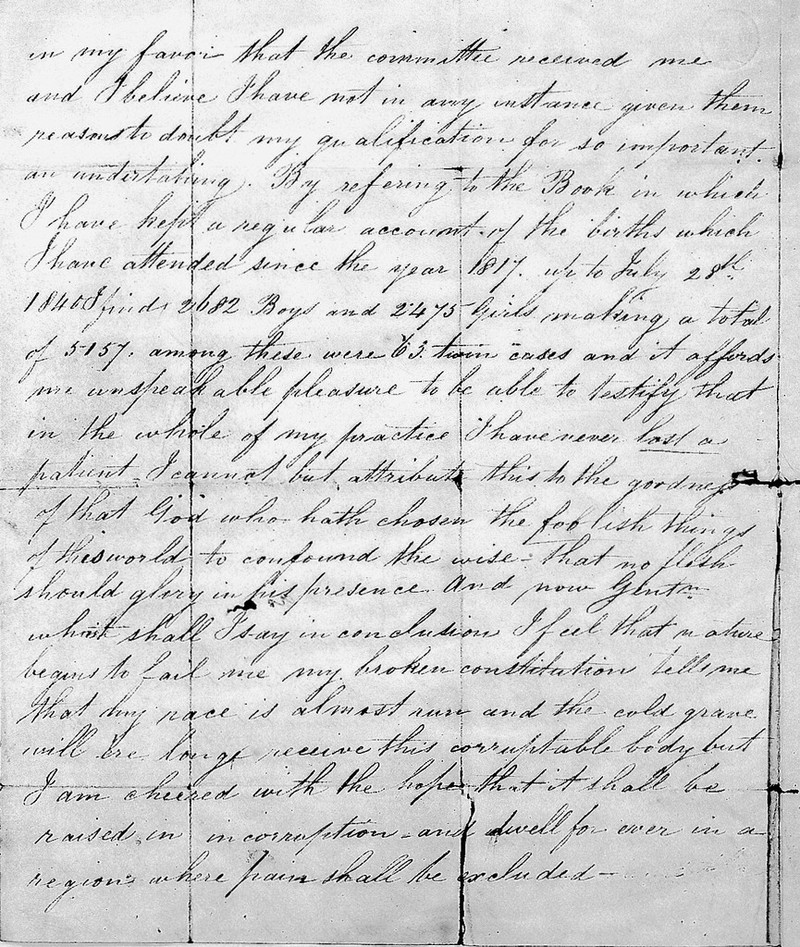 in my favor that the committee received me
and I believe I have not in any instance given them
reasons to doubt my qualification for so important
an undertaking. By refering to the Book in which
I have kept a regular account of the births which
I have attended since the year 1817. up to July 28th
1840 I find 2682 Boys and 2475 Girls making a total
of 5157. among these were 63 twin cases and it affords
me unspeakable pleasure to be able to testify that
in the whole of my practice I have never lost a
patient - I cannot but attribute this to the goodness
of that God who hath chosen the foolish things
of this world to confound the wise - that no flesh
should glory in his presence And now Gentn
what shall I say in conclusion I feel that nature
begins to fail me my broken constitution tells me
that my race is almost run and the cold grave
will ere longe receive this corruptable body but
I am cheered with the hope that it shall be
raised in incorruption - and dwell for ever in a
region where pain shall be excluded -